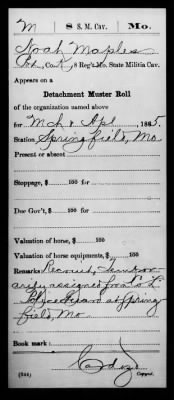 M | 8 S. M. Cav. | Mo.
Noah Maples
Pvt., Co. K, 8 Reg't Mo. State Militia Cav.
Appears on a
Detachment Muster Roll
of the organization named above
for Mch & Apl, 1865.
Station Springfield, Mo
Present or absent
Stoppage, $ 100 for
Due Gov't, $ 100 for
Valuation of horse, $ 100
Valuation of horse equipments, $ 100
Remarks: Recruit, Tempor
arily assigned for
Guard at Spring
field, Mo
Book mark:
(344)
Copyist.